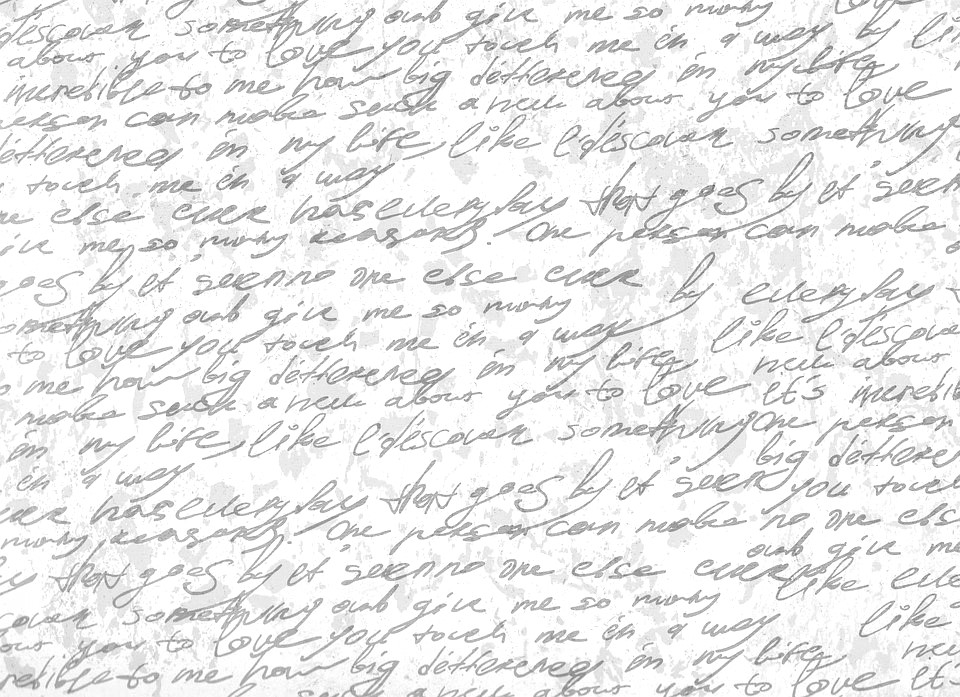 and give me so many
discover something
about you to love you touch me in a way by
incredible to me how big difference in my life
person can make such a new about you to love
difference in my life, like I discover something
touch me in a way
else ever has everyday that goes by it
me, so many reasons. One person can make
goes by it one else ever
by everyday
something and give me so many
to love you touch me in a way like I discover
me how big difference in my life new about
make such a new about you to love it's
in my life, like I discover something One person
in a way big
ever has everyday that goes by it you touch
many reasons. One person can make no one else
that goes by it one else ever and give me
like
something and give me so many like
you to love you touch me in a way
to me how big difference in my life
such a new about you to love